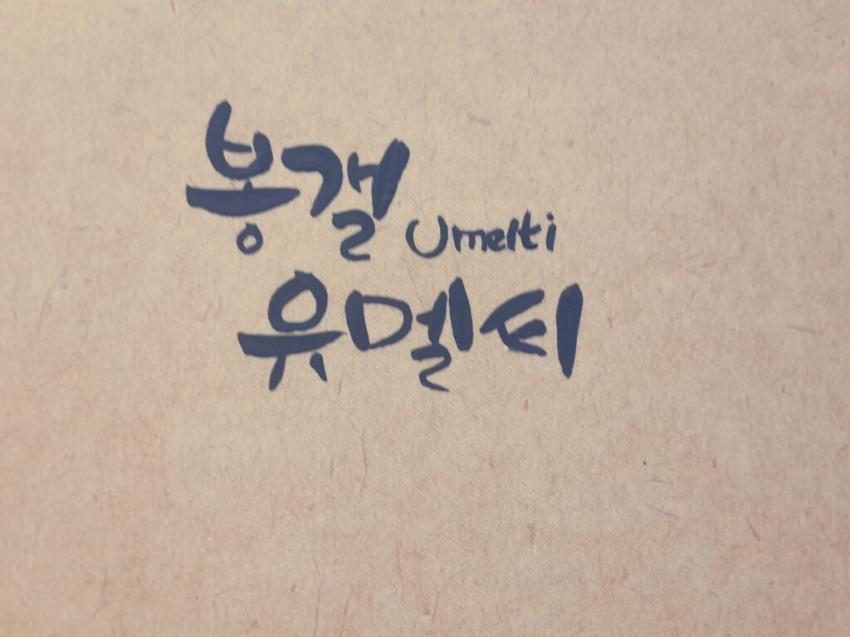 봉갤 Umelti
유멜티